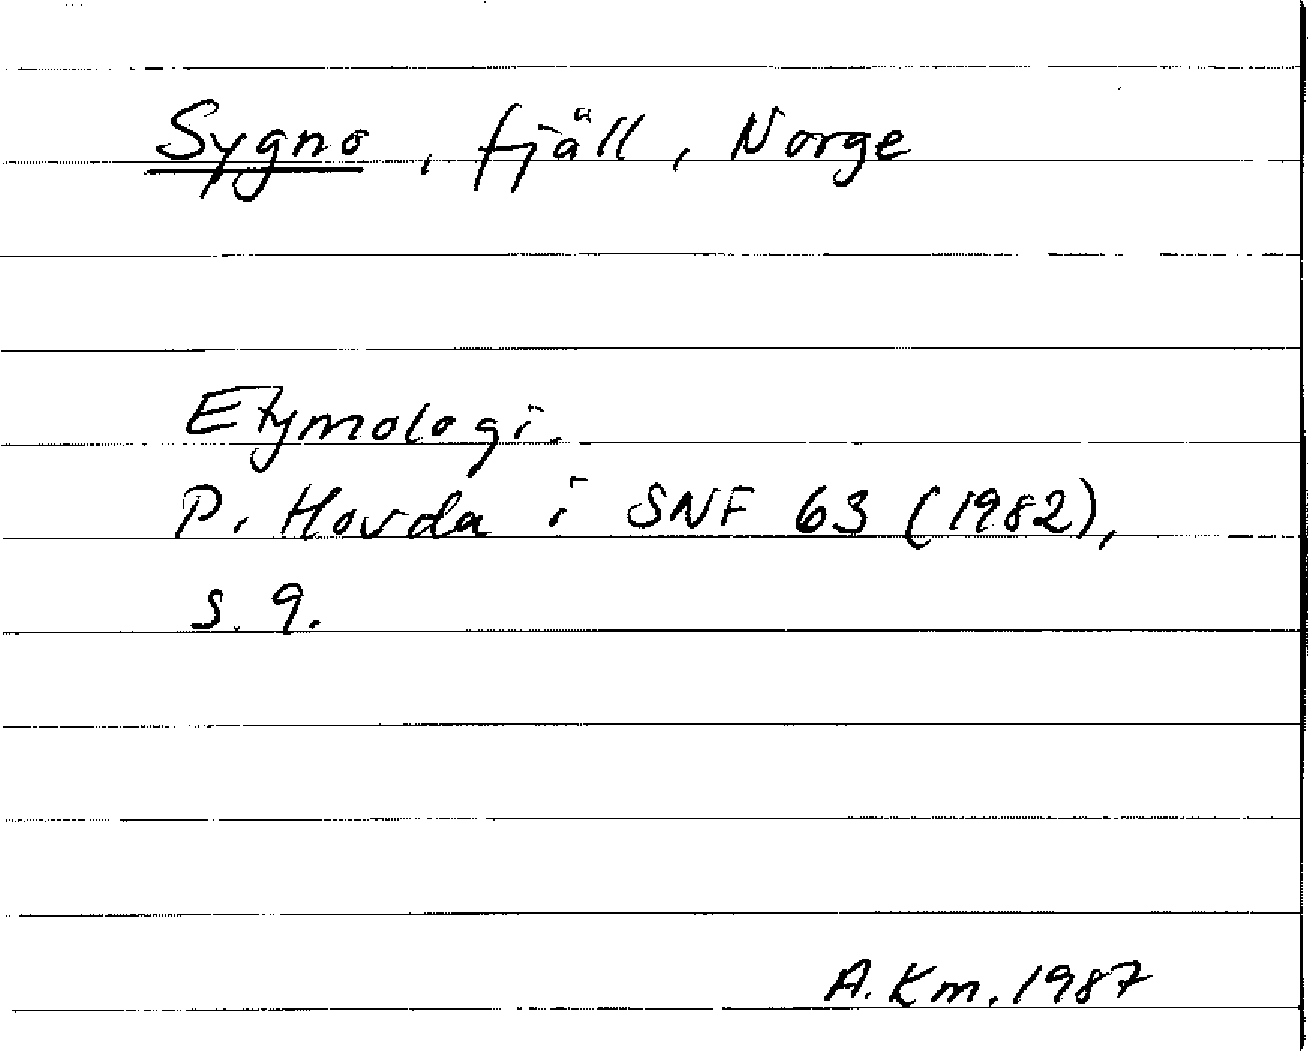 Sygno, fjäll, Norge
Etymologi.
P. Hovda i SNF 63 (1982),
s. 9.
A. Km. 1987